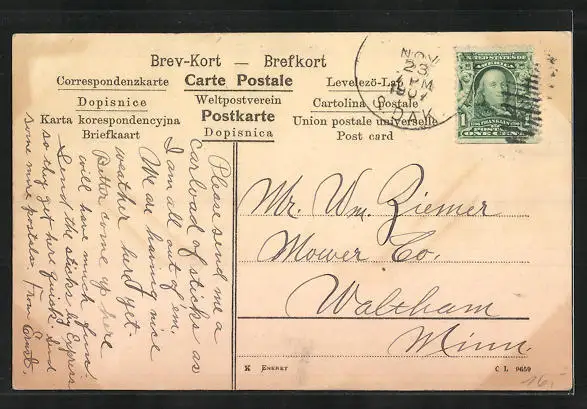 Brev-Kort — Brefkort
Correspondenzkarte Carte Postale Levelezö-Lap
Dopisnice Weltpostverein Cartolina Postale
Karta korespondencyjna Postkarte Union postale universelle
Briefkaart Dopisnica Post card
NOV
23
PM
1907
S.DAK
UNITED STATES OF
AMERICA
1 1
POSTAGE
ONE CENT
Please send me a
carload of sticks as
I am all out of em.
We are having nice
weather here yet.
Better come up here
will have much fun.
Send the sticks by Express
so they get here quick. Send
some more postals. From Ernst.
Mr. Wm. Ziemer
Mower Co.
Waltham
Minn
K ENERET
C L 9659
16.-